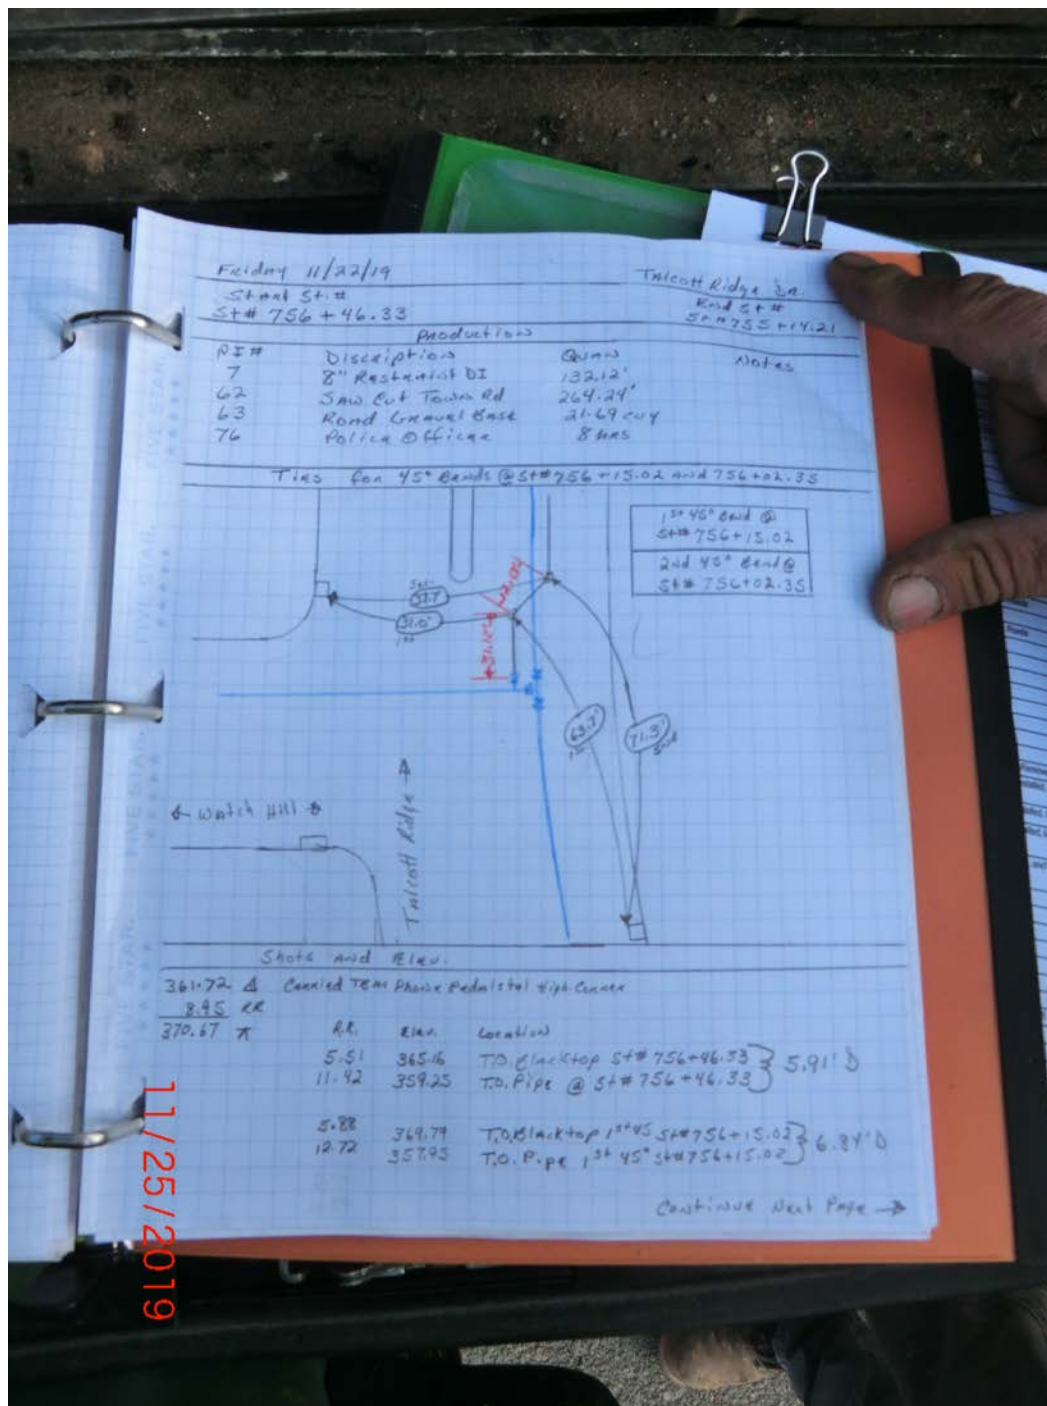 Friday 11/22/19
Talcott Ridge Dr.
Start St.#
End St#
St# 756 + 46.33
St#755+14.21
Production
PI#
Discription
Quan
Notes
7
8" Restraint DI
132.12'
62
Saw Cut Town Rd
264.24'
63
Road Gravel Base
21.69 cuy
76
Police Officer
8 HRS
Ties for 45° Bends @ St#756+15.02 and 756+02.35
1st 45° Bend @
St# 756+15.02
2nd 45° Bend @
St# 756+02.35
31.0'
1st
63.7'
1st
71.3'
2nd
← Watch Hill →
Talcott Ridge →
Shots and Elev.
361.72 Δ Carried TBM Phone Pedalstal High Corner
8.95 RR
370.67 ⊼
R.R.
Elev.
Location
5.51
365.16
T.O. Blacktop St# 756+46.33
5.91' D
11.42
359.25
T.O. Pipe @ St# 756+46.33
5.88
364.79
T.O. Blacktop 1st 45 St#756+15.02
6.84' D
12.72
357.95
T.O. Pipe 1st 45° St#756+15.02
Continue Next Page →
11/25/2019